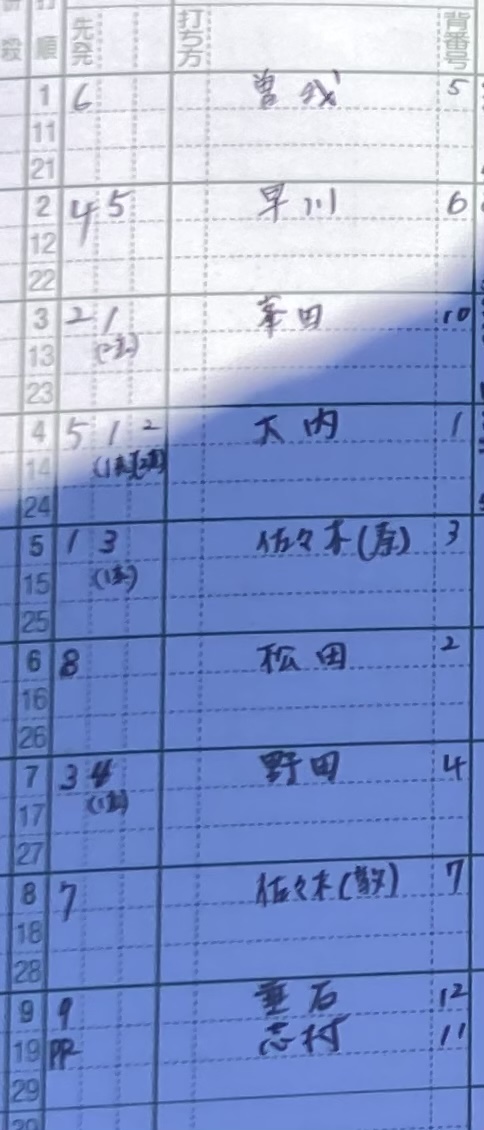 打順 先発 打ち方 背番号
1 6 曽我 5
11
21
2 4 5 早川 6
12
22
3 2 1 峯田 10
13
23
4 5 1 2 大内 1
14
24
5 1 3 佐々木( ) 3
15
25
6 8 松田 2
16
26
7 3 4 野田 4
17
27
8 7 佐々木( ) 7
18
28
9 9 垂石 12
19 PR 志村 11
29